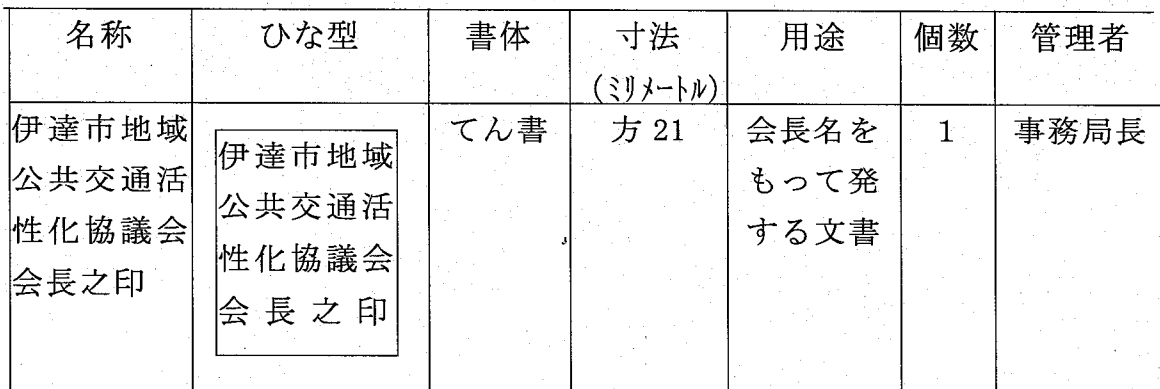 名称 ひな型 書体 寸法 用途 個数 管理者
(ミリメートル)
伊達市地域
公共交通活
性化協議会
会長之印
伊達市地域
公共交通活
性化協議会
会長之印
てん書
方21
会長名を
もって発
する文書
1
事務局長